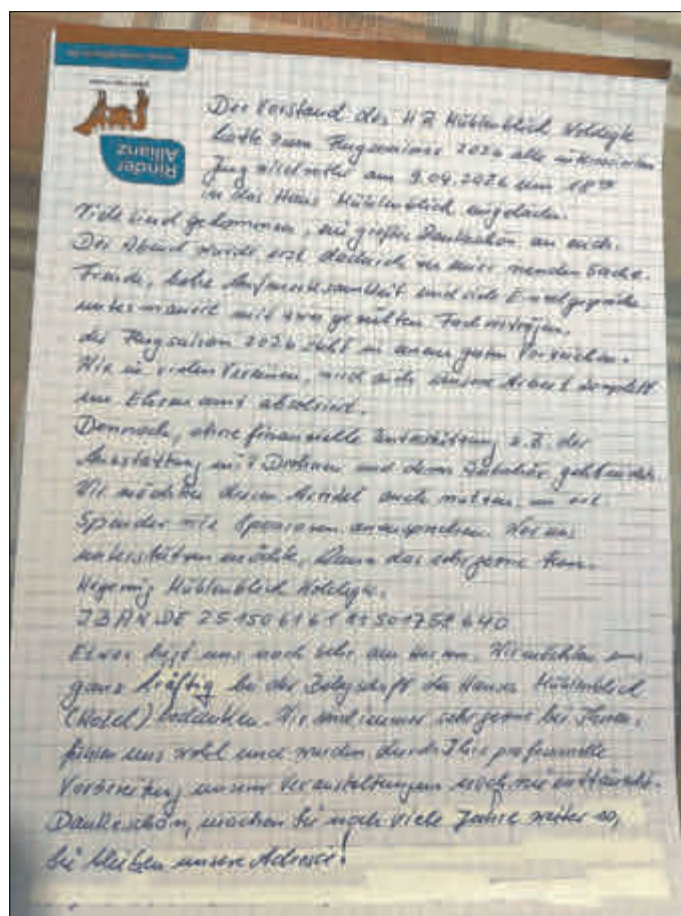 Rinder
Allianz
Der Vorstand des HR Mühlenblick Woldegk
hatte zum Flugseminar 2026 alle interessierten
am 9.04.2026 um 18⁰⁰
in das Haus Mühlenblick eingeladen.
Viele sind gekommen, ein großes Dankeschön an euch.
Der Abend wurde erst dadurch zu einer runden Sache.
Freude, hohe Aufmerksamkeit und viele Einzelgespräche
untermauert mit zwei Fachvorträgen,
die Flugsaison 2026 steht in einem guten Vorzeichen.
Wie in vielen Vereinen, wird auch unsere Arbeit komplett
im Ehrenamt absolviert.
Dennoch, ohne finanzielle Unterstützung z.B. der
Ausstattung mit Drohnen und deren Zubehör geht es nicht.
Wir möchten diesen Artikel auch nutzen, um
Spender wie Sponsoren anzusprechen. Wer uns
unterstützen möchte, kann das sehr gerne tun.
Mühlenblick Woldegk.
IBAN DE
Etwas liegt uns noch sehr am Herzen. Wir möchten uns
ganz kräftig bei der Belegschaft des Hauses Mühlenblick
(Hotel) bedanken. Wir sind immer sehr gerne bei Ihnen,
fühlen uns wohl und wurden durch Ihre professionelle
Vorbereitung unserer Veranstaltungen noch nie enttäuscht.
Dankeschön, machen Sie noch viele Jahre weiter so,
Sie bleiben unsere Adresse!